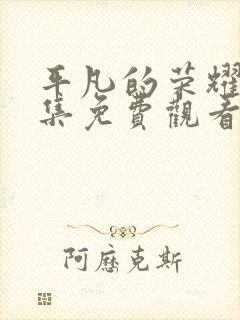 平凡的荣耀
集免費觀看
阿歷克斯